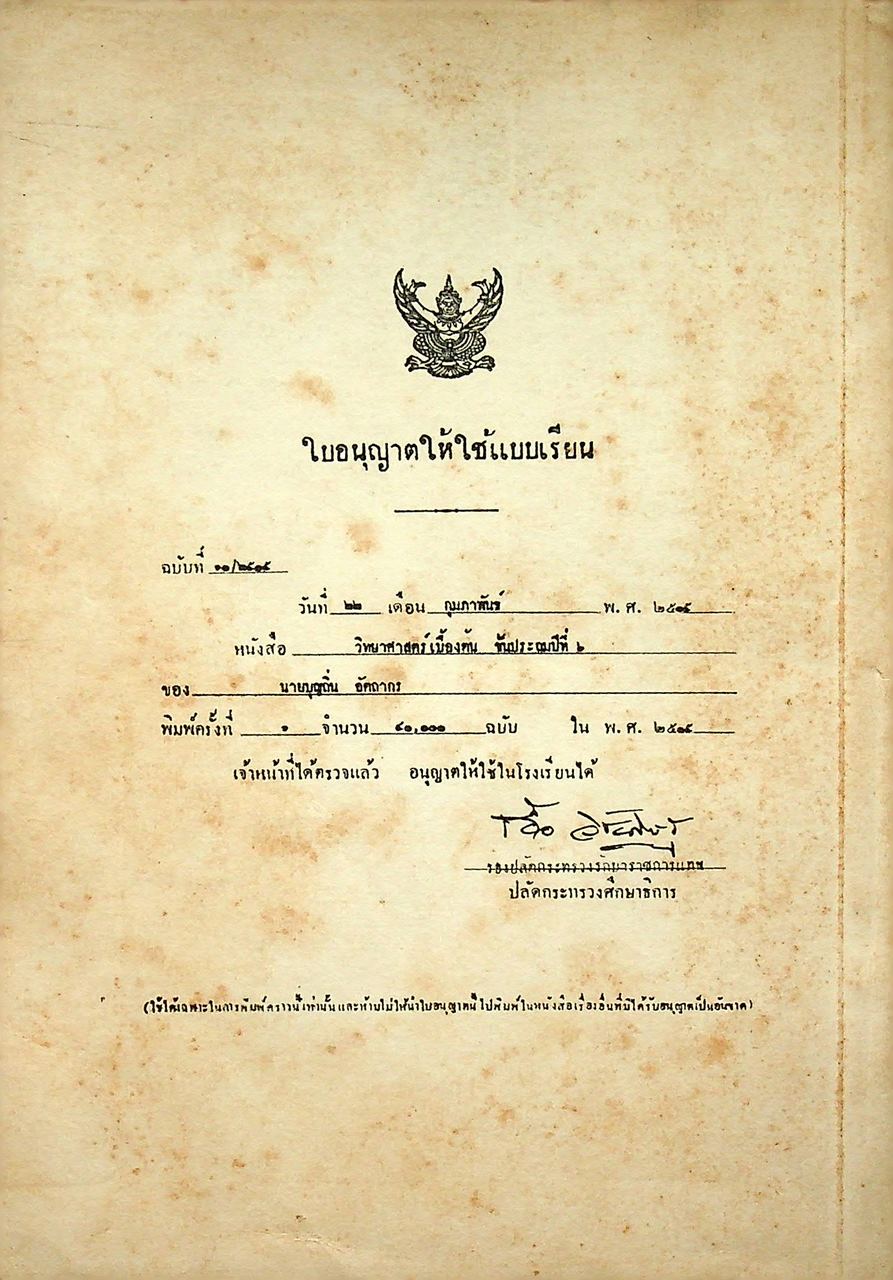 ใบอนุญาตให้ใช้แบบเรียน
ฉบับที่
วันที่ ๒๒ เดือน กุมภาพันธ์ พ. ศ.
หนังสือ วิทยาศาสตร์เบื้องต้น ชั้นประถมปีที่ ๖
ของ นายบุญถิ่น อัตถากร
พิมพ์ครั้งที่ ๑ จำนวน ฉบับ ใน พ. ศ.
เจ้าหน้าที่ได้ตรวจแล้ว อนุญาตให้ใช้ในโรงเรียนได้
รองปลัดกระทรวงรักษาราชการแทน
ปลัดกระทรวงศึกษาธิการ
(ใช้ได้เฉพาะในการพิมพ์คราวนี้เท่านั้น และห้ามไม่ให้นำใบอนุญาตนี้ไปพิมพ์ในหนังสือเรื่องอื่นที่มิได้รับอนุญาตเป็นอันขาด)